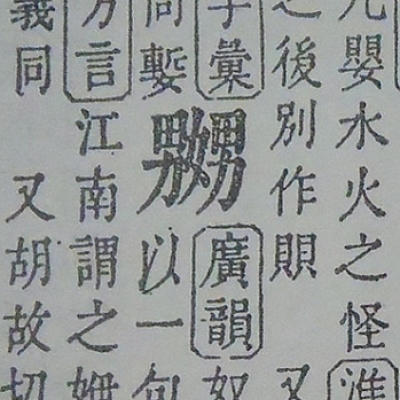 嬰水火之怪淮
之後別作 又
字彙
同
嬲
廣韻奴
以一句
方言江南謂之
義同 又胡故切